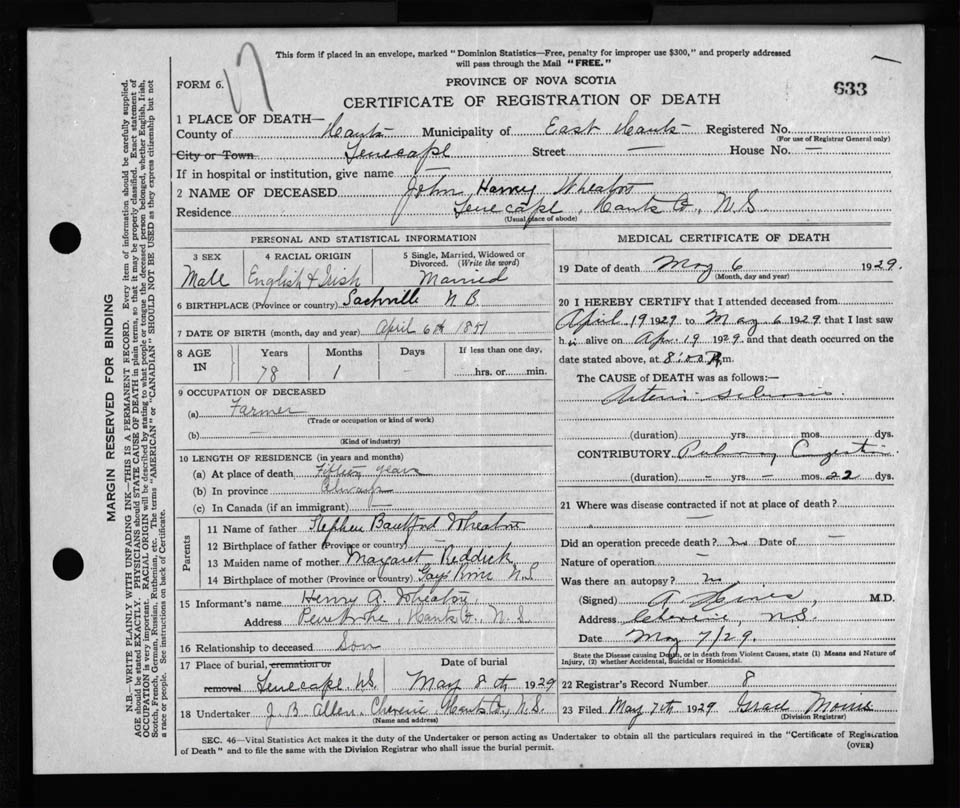 This form if placed in an envelope, marked "Dominion Statistics—Free, penalty for improper use $300," and properly addressed
will pass through the Mail "FREE."
17
FORM 6.
PROVINCE OF NOVA SCOTIA
633
CERTIFICATE OF REGISTRATION OF DEATH
1 PLACE OF DEATH—
County of Hants Municipality of East Hants Registered No.
(For use of Registrar General only)
City or Town Tenecape Street — House No. —
If in hospital or institution, give name —
2 NAME OF DECEASED John Harvey Wheaton
Residence Tenecape, Hants Co., N.S.
(Usual place of abode)
PERSONAL AND STATISTICAL INFORMATION
3 SEX 4 RACIAL ORIGIN 5 Single, Married, Widowed or
Divorced. (Write the word)
Male English & Irish Married
6 BIRTHPLACE (Province or country) Sackville N.B.
7 DATE OF BIRTH (month, day and year) April 6th 1851
8 AGE IN Years Months Days If less than one day,
78 1 - hrs. or min.
9 OCCUPATION OF DECEASED
(a) Farmer
(Trade or occupation or kind of work)
(b) —
(Kind of industry)
10 LENGTH OF RESIDENCE (in years and months)
(a) At place of death Fifteen years
(b) In province Always
(c) In Canada (if an immigrant) —
Parents
11 Name of father Stephen Wheaton
12 Birthplace of father (Province or country) —
13 Maiden name of mother Margaret Reddick
14 Birthplace of mother (Province or country) Gays River N.S.
15 Informant's name Henry A. Wheaton
Address Pembroke, Hants Co., N.S.
16 Relationship to deceased Son
17 Place of burial, cremation or Date of burial
removal Tenecape, N.S. May 8th 1929
18 Undertaker J. B. Allen, Cheverie, Hants Co., N.S.
(Name and address)
MEDICAL CERTIFICATE OF DEATH
19 Date of death May 6 1929.
(Month, day and year)
20 I HEREBY CERTIFY that I attended deceased from
April 19 1929 to May 6 1929 that I last saw
h alive on Apr. 19 1929. and that death occurred on the
date stated above, at 8:00 P.m.
The CAUSE of DEATH was as follows:—
Arterio-sclerosis.
(duration) yrs. mos. dys.
CONTRIBUTORY Pulmonary Congestion
(duration) - yrs. - mos. 22 dys.
21 Where was disease contracted if not at place of death?
—
Did an operation precede death? no Date of —
Nature of operation —
Was there an autopsy? no
(Signed) A. Hines, M.D.
Address Cheverie, N.S.
Date May 7/29.
State the Disease causing Death, or in death from Violent Causes, state (1) Means and Nature of
Injury, (2) whether Accidental, Suicidal or Homicidal.
22 Registrar's Record Number 8
23 Filed May 7th 1929
(Division Registrar)
SEC. 46—Vital Statistics Act makes it the duty of the Undertaker or person acting as Undertaker to obtain all the particulars required in the "Certificate of Registration
of Death" and to file the same with the Division Registrar who shall issue the burial permit. (OVER)
MARGIN RESERVED FOR BINDING
N.B.—WRITE PLAINLY WITH UNFADING INK—THIS IS A PERMANENT RECORD. Every item of information should be carefully supplied.
AGE should be stated EXACTLY. PHYSICIANS should STATE CAUSE OF DEATH in plain terms, so that it may be properly classified. Exact statement of
OCCUPATION is very important. RACIAL ORIGIN will be described by stating to what people or tongue the deceased person belonged, whether English, Irish,
Scotch, French, German, Russian, Ruthenian, etc. The terms "AMERICAN" or "CANADIAN" SHOULD NOT BE USED as they express citizenship but not
a race or people. See instructions on back of Certificate.